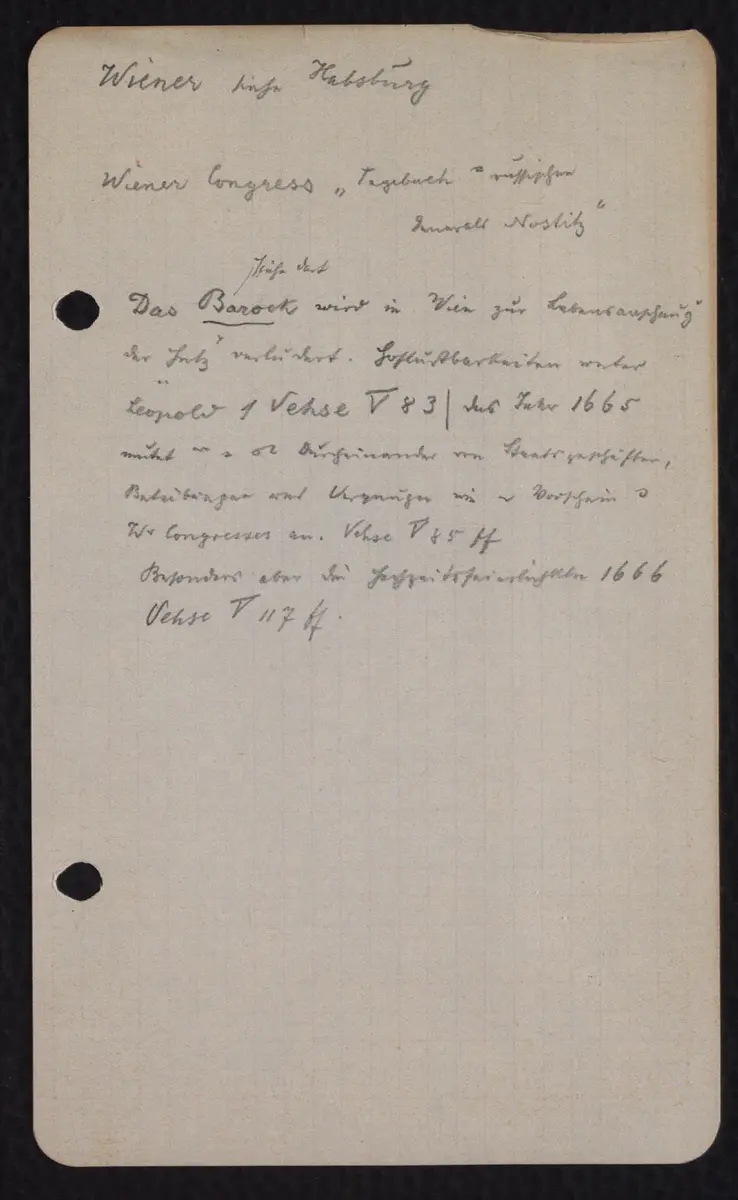 Wiener siehe Habsburg
Wiener Congress „Tagebuch russischen
Generals Nostitz"
siehe dort
Das Barock wird in Wien zur Lebensanschaug
der "Hetz" verludert. Hoflustbarkeiten unter
Leopold 1 Vehse V 83 | das Jahr 1665
mutet Durcheinander von Staatsgeschäften,
und Vergnügen wie Vorschein
Wr Congresses an. Vehse V 85 ff
Besonders aber die Hochzeitsfeierlichktn 1666
Vehse V 117 ff.